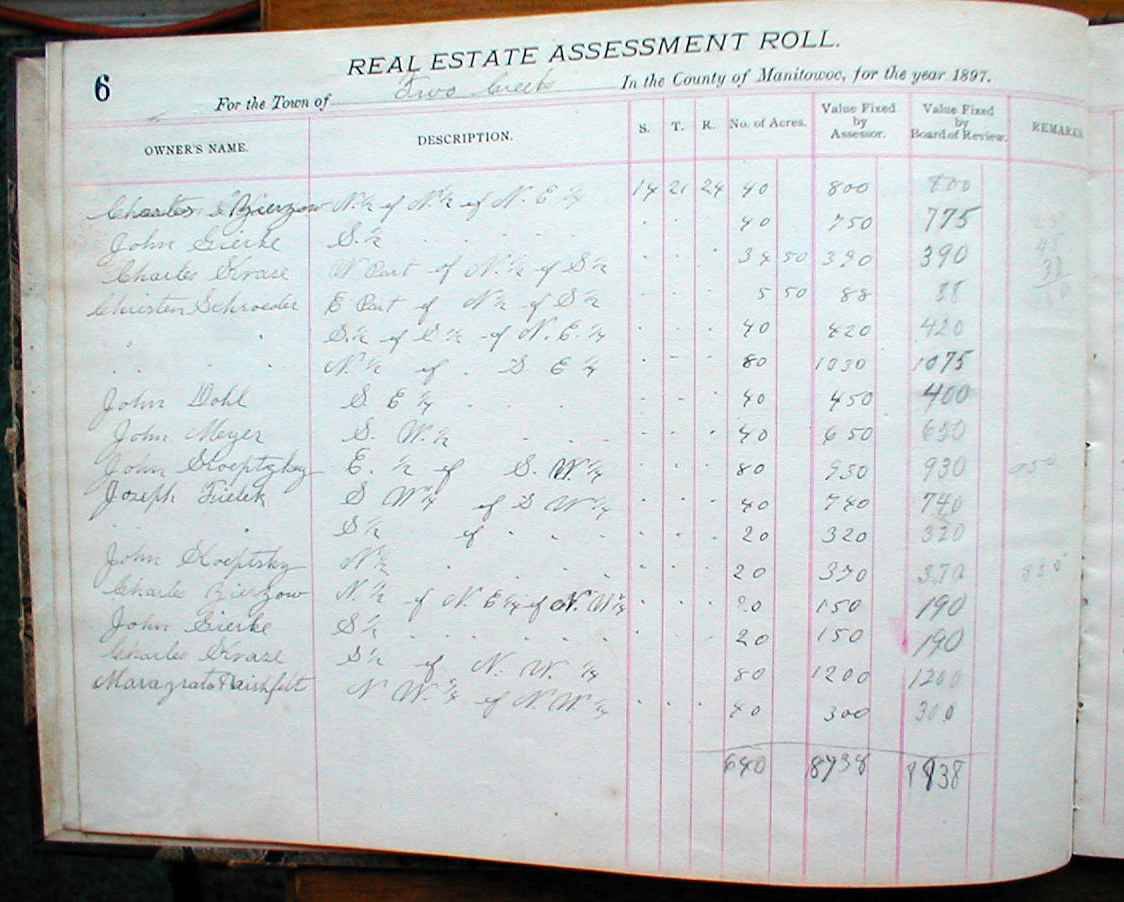 6
REAL ESTATE ASSESSMENT ROLL.
For the Town of Two Creek In the County of Manitowoc, for the year 1897.
OWNER'S NAME. DESCRIPTION. S. T. R. No. of Acres. Value Fixed by Assessor. Value Fixed by Board of Review. REMARKS
Charles Zierzow N. ½ of N ½ of N. E ¼ 14 21 24 40 800 800
John Gierke S. ½ . . . . . . 40 750 775
Charles Krase N Part of N. ½ of S ½ . . . 34 50 390 390
Christen Schroeder E Part of N ½ of S ½ . . . 5 50 88 88
. . S. ½ of S ½ of N. E. ¼ . . . 40 420 420
. . . . N. ½ of . S E ¼ . . . 80 1030 1075
John Dohl S E ¼ . . . . . . . 40 450 400
John Meyer S. W. ¼ . . . . . . 40 650 650
John Skoeptzky E. ½ of S. W. ¼ . . . 80 930 930
Joseph Fielek S W ¼ of S W ¼ . . . 40 740 740
. . S ½ of . . . . . . 20 320 320
John Skoeptsky N ½ . . . . . . . 20 370 370
Charles Zierzow N. ½ of N. E ¼ of N. W ¼ . . . 20 150 190
John Gierke S ½ . . . . . . . . 20 150 190
Charles Krase S ½ of N. W. ¼ 80 1200 1200
N W. ¼ of N W. ¼ . . . 40 300 300
640 8738 8838